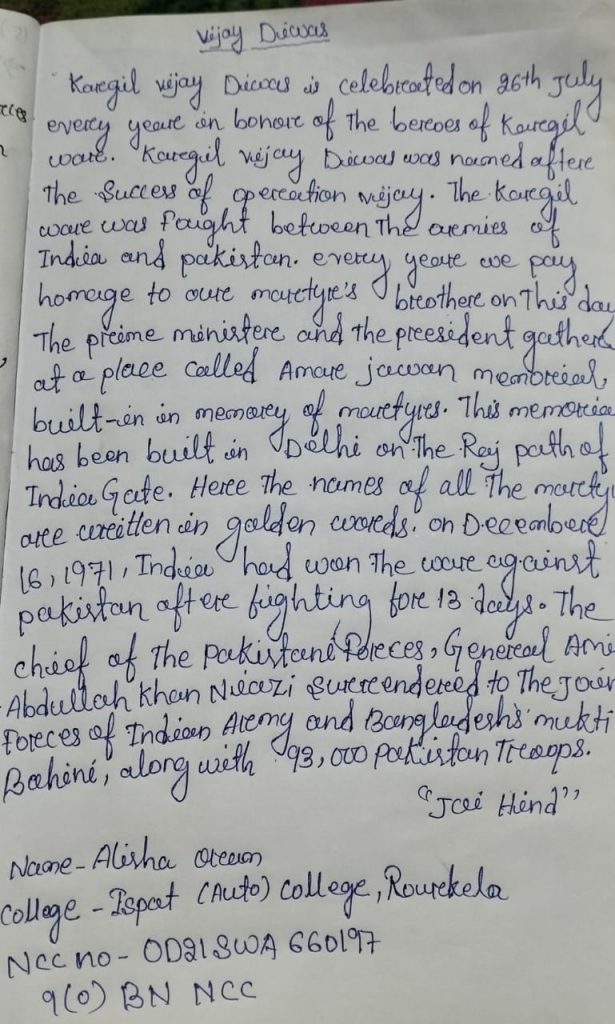 Vijay Diwas
Karegil vijay Diwas is celebreated on 26th July
everey yeare in honore of The heroes of Karegil
ware. Karegil vijay Diwas was named aftere
The Success of opereation vijay. The Karegil
ware was fought between The aremies of
India and pakistan. everey yeare we pay
homage to oure maretyre's breothere on This day
The preime ministere and the preesident gathere
at a place called Amare jawan memoreial,
built-in in memorey of maretyres. This memoreia
has been built in Delhi on The Raj path of
India Gate. Here The names of all The marety
are wreitten in golden woreds. on Decembere
16, 1971, India had won The ware against
pakistan aftere fighting fore 13 days. The
chief of The Pakistani Foreces, Genereal Ami
Abdullah Khan Niazi Surerendered to The join
foreces of Indian Aremy and Bangladesh's mukti
Bahini, along with 93,000 Pakistan Treoops.
"Jai Hind"
Name - Alisha Oreaon
College - Ispat (Auto) College, Rourekela
NCC no - OD21SWA 660197
9(O) BN NCC